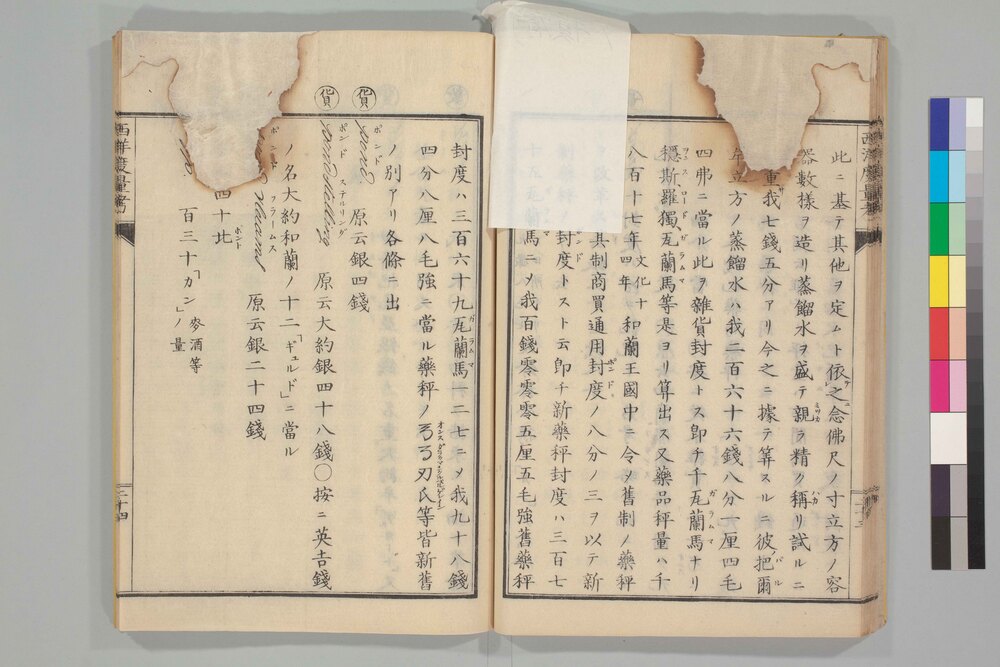 此ニ基テ其他ヲ定ムト依之念佛尺ノ寸立方ノ容
器數樣ヲ造リ蒸餾水ヲ盛テ親ラ精ク稱リ試ルニ
重我七錢五分アリ今之ニ據テ算スルニ彼把爾
立方ノ蒸餾水ハ我二百六十六錢八分一厘四毛
四弗ニ當ル此ヲ雜貨封度トス卽チ千瓦蘭馬ナリ
穩斯羅獨瓦蘭馬等是ヨリ算出ス又藥品秤量ハ千
八百十七年文化十四年和蘭王國中ニ令メ舊制ノ藥秤
其制商買通用封度ノ八分ノ三ヲ以テ新
封度トスト云卽チ新藥秤封度ハ三百七
馬ニメ我百錢零零零五厘五毛強舊藥秤
封度ハ三百六十九瓦蘭馬一二七ニメ我九十八錢
四分八厘八毛強ニ當ル藥秤ノ
氏等皆新舊
ノ別アリ各條ニ出
貨
ポンド
原云銀四錢
貨
ポンド ステルリング
原云大約銀四十八錢〇按ニ英吉錢
ノ名大約和蘭ノ十二「ギュルド」ニ當ル
フラームス
原云銀二十四錢
四十北
百三十「カン」ノ量 麥酒等
二十四